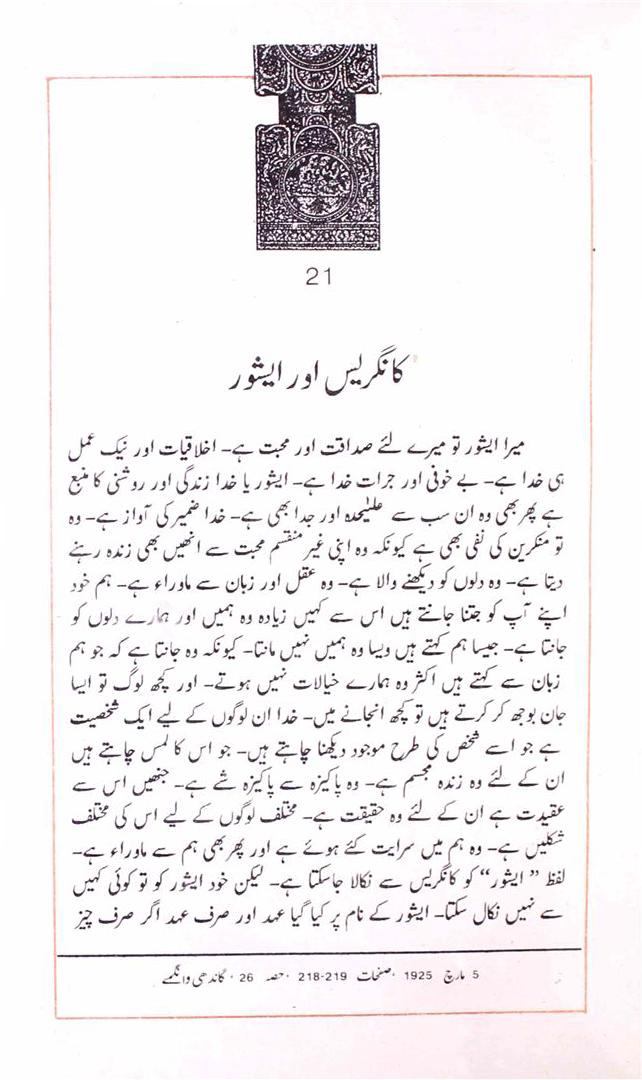 21
کانگریس اور ایشور
میرا ایشور تو میرے لئے صداقت اور محبت ہے۔ اخلاقیات اور نیک عمل
ہی خدا ہے۔ بے خوفی اور جرات خدا ہے۔ ایشور یا خدا زندگی اور روشنی کا منبع
ہے پھر بھی وہ ان سب سے علیٰحدہ اور جدا بھی ہے۔ خدا ضمیر کی آواز ہے۔ وہ
تو منکرین کی نفی بھی ہے کیونکہ وہ اپنی غیر منقسم محبت سے انھیں بھی زندہ رہنے
دیتا ہے۔ وہ دلوں کو دیکھنے والا ہے۔ وہ عقل اور زبان سے ماوراء ہے۔ ہم خود
اپنے آپ کو جتنا جانتے ہیں اس سے کہیں زیادہ وہ ہمیں اور ہمارے دلوں کو
جانتا ہے۔ جیسا ہم کہتے ہیں ویسا وہ ہمیں نہیں مانتا۔ کیونکہ وہ جانتا ہے کہ جو ہم
زبان سے کہتے ہیں اکثر وہ ہمارے خیالات نہیں ہوتے۔ اور کچھ لوگ تو ایسا
جان بوجھ کر کرتے ہیں تو کچھ انجانے میں۔ خدا ان لوگوں کے لیے ایک شخصیت
ہے جو اسے شخص کی طرح موجود دیکھنا چاہتے ہیں۔ جو اس کا لمس چاہتے ہیں
ان کے لئے وہ زندہ مجسم ہے۔ وہ پاکیزہ سے پاکیزہ شے ہے۔ جنھیں اس سے
عقیدت ہے ان کے لئے وہ حقیقت ہے۔ مختلف لوگوں کے لیے اس کی مختلف
شکلیں ہے۔ وہ ہم میں سرایت کئے ہوئے ہے اور پھر بھی ہم سے ماوراء ہے۔
لفظ ”ایشور“ کو کانگریس سے نکالا جاسکتا ہے۔ لیکن خود ایشور کو تو کوئی کہیں
سے نہیں نکال سکتا۔ ایشور کے نام پر کیا گیا عہد اور صرف عہد اگر صرف چیز
5 مارچ 1925 ، صفحات 219-218 ، حصہ 26 ، گاندھی وانگمے